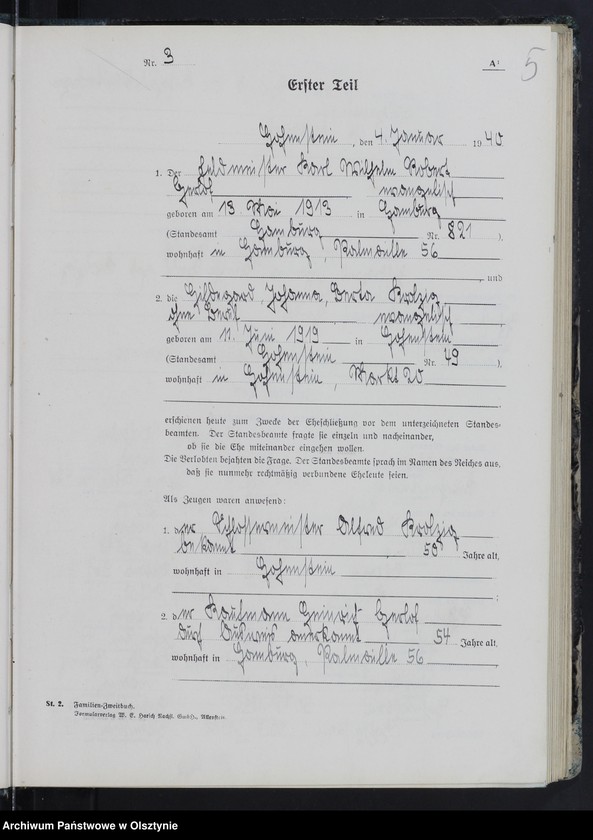 Nr. 3
A¹
5
Erster Teil
Hohenstein, den 4. Januar 1940
1. Der Feldmeister Karl Wilhelm Robert
Gerlof evangelisch
geboren am 13. Mai 1913 in Hamburg
(Standesamt Hamburg Nr. 821 ),
wohnhaft in Hamburg, Palmaille 56
, und
2. die Hildegard, Johanna, Berta Kolzig
ohne Beruf evangelisch
geboren am 11. Juni 1919 in Hohenstein
(Standesamt Hohenstein Nr. 49 ),
wohnhaft in Hohenstein, Markt 20
erschienen heute zum Zwecke der Eheschließung vor dem unterzeichneten Standes-
beamten. Der Standesbeamte fragte sie einzeln und nacheinander,
ob sie die Ehe miteinander eingehen wollen.
Die Verlobten bejahten die Frage. Der Standesbeamte sprach im Namen des Reiches aus,
daß sie nunmehr rechtmäßig verbundene Eheleute seien.
Als Zeugen waren anwesend:
1. der Schlossermeister Alfred
bekannt 58 Jahre alt,
wohnhaft in Hohenstein
;
2. der Kaufmann Heinrich Gerlof
durch Ausweis anerkannt 54 Jahre alt,
wohnhaft in Hamburg, Palmaille 56
St. 2. Familien-Zweitbuch.
Vermalarverlag W. E. Harich Nachf. GmbH., Allenstein.
Archiwum Państwowe w Olsztynie